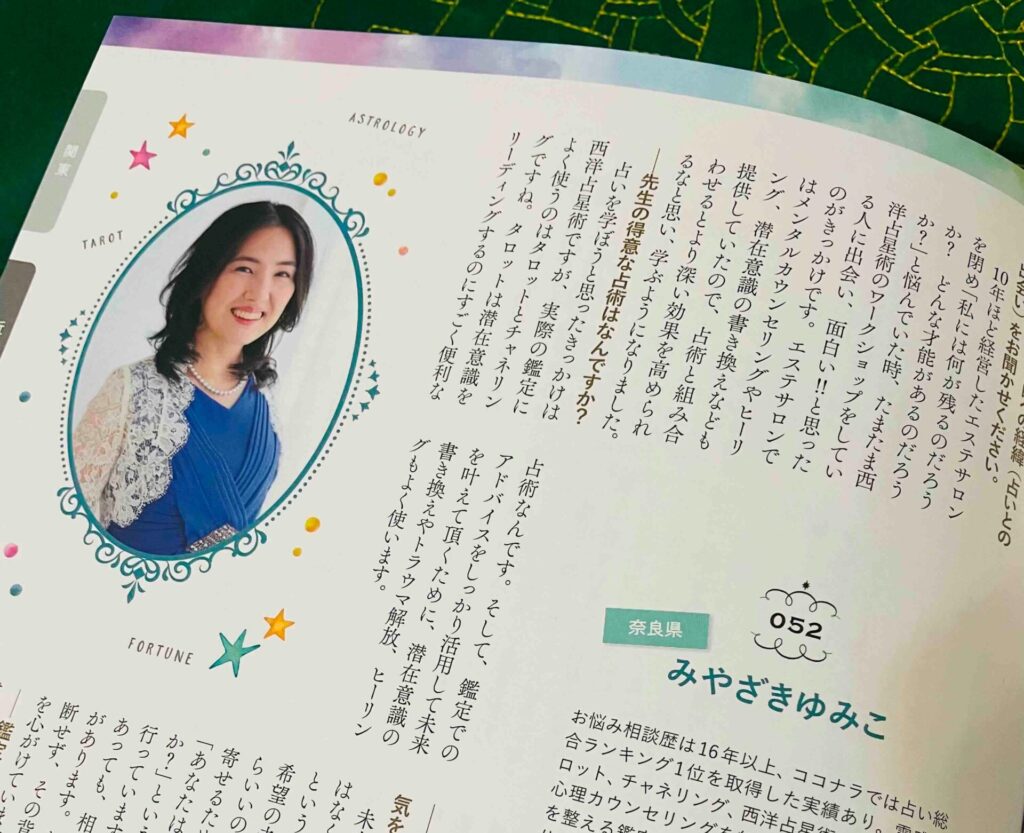 関東
ASTROLOGY
TAROT
FORTUNE
の経緯（占いとの
出会い）をお聞かせください。
10年ほど経営したエステサロン
を閉め「私には何が残るのだろう
か？　どんな才能があるのだろう
か？」と悩んでいた時、たまたま西
洋占星術のワークショップをしてい
る人に出会い、面白い!!と思った
のがきっかけです。エステサロンで
はメンタルカウンセリングやヒーリ
ング、潜在意識の書き換えなども
提供していたので、占術と組み合
わせるとより深い効果を高められ
るなと思い、学ぶようになりました。
―先生の得意な占術はなんですか？
占いを学ぼうと思ったきっかけは
西洋占星術ですが、実際の鑑定に
よく使うのはタロットとチャネリン
グですね。タロットは潜在意識を
リーディングするのにすごく便利な
占術なんです。そして、鑑定での
アドバイスをしっかり活用して未来
を叶えて頂くために、潜在意識の
書き換えやトラウマ解放、ヒーリン
グもよく使います。
052
奈良県
みやざきゆみこ
お悩み相談歴は16年以上、ココナラでは占い総
合ランキング1位を取得した実績あり。
ロット、チャネリング、西洋占星術
心理カウンセリングを
を整える鑑定
気を
未
はなく
という
希望の
らいいの
寄せるた
「あなたは
か？」という
行っていま
あっていま
があっても、相
があります。
断せず、その背
を心がけていま
鑑定